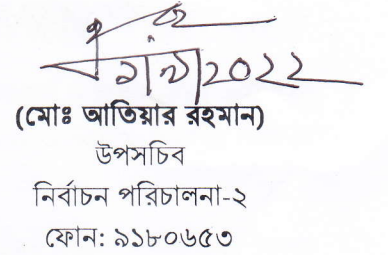 (মোঃ আতিয়ার রহমান)
উপসচিব
নির্বাচন পরিচালনা-২
ফোন: ৯১৮০৬৫৩